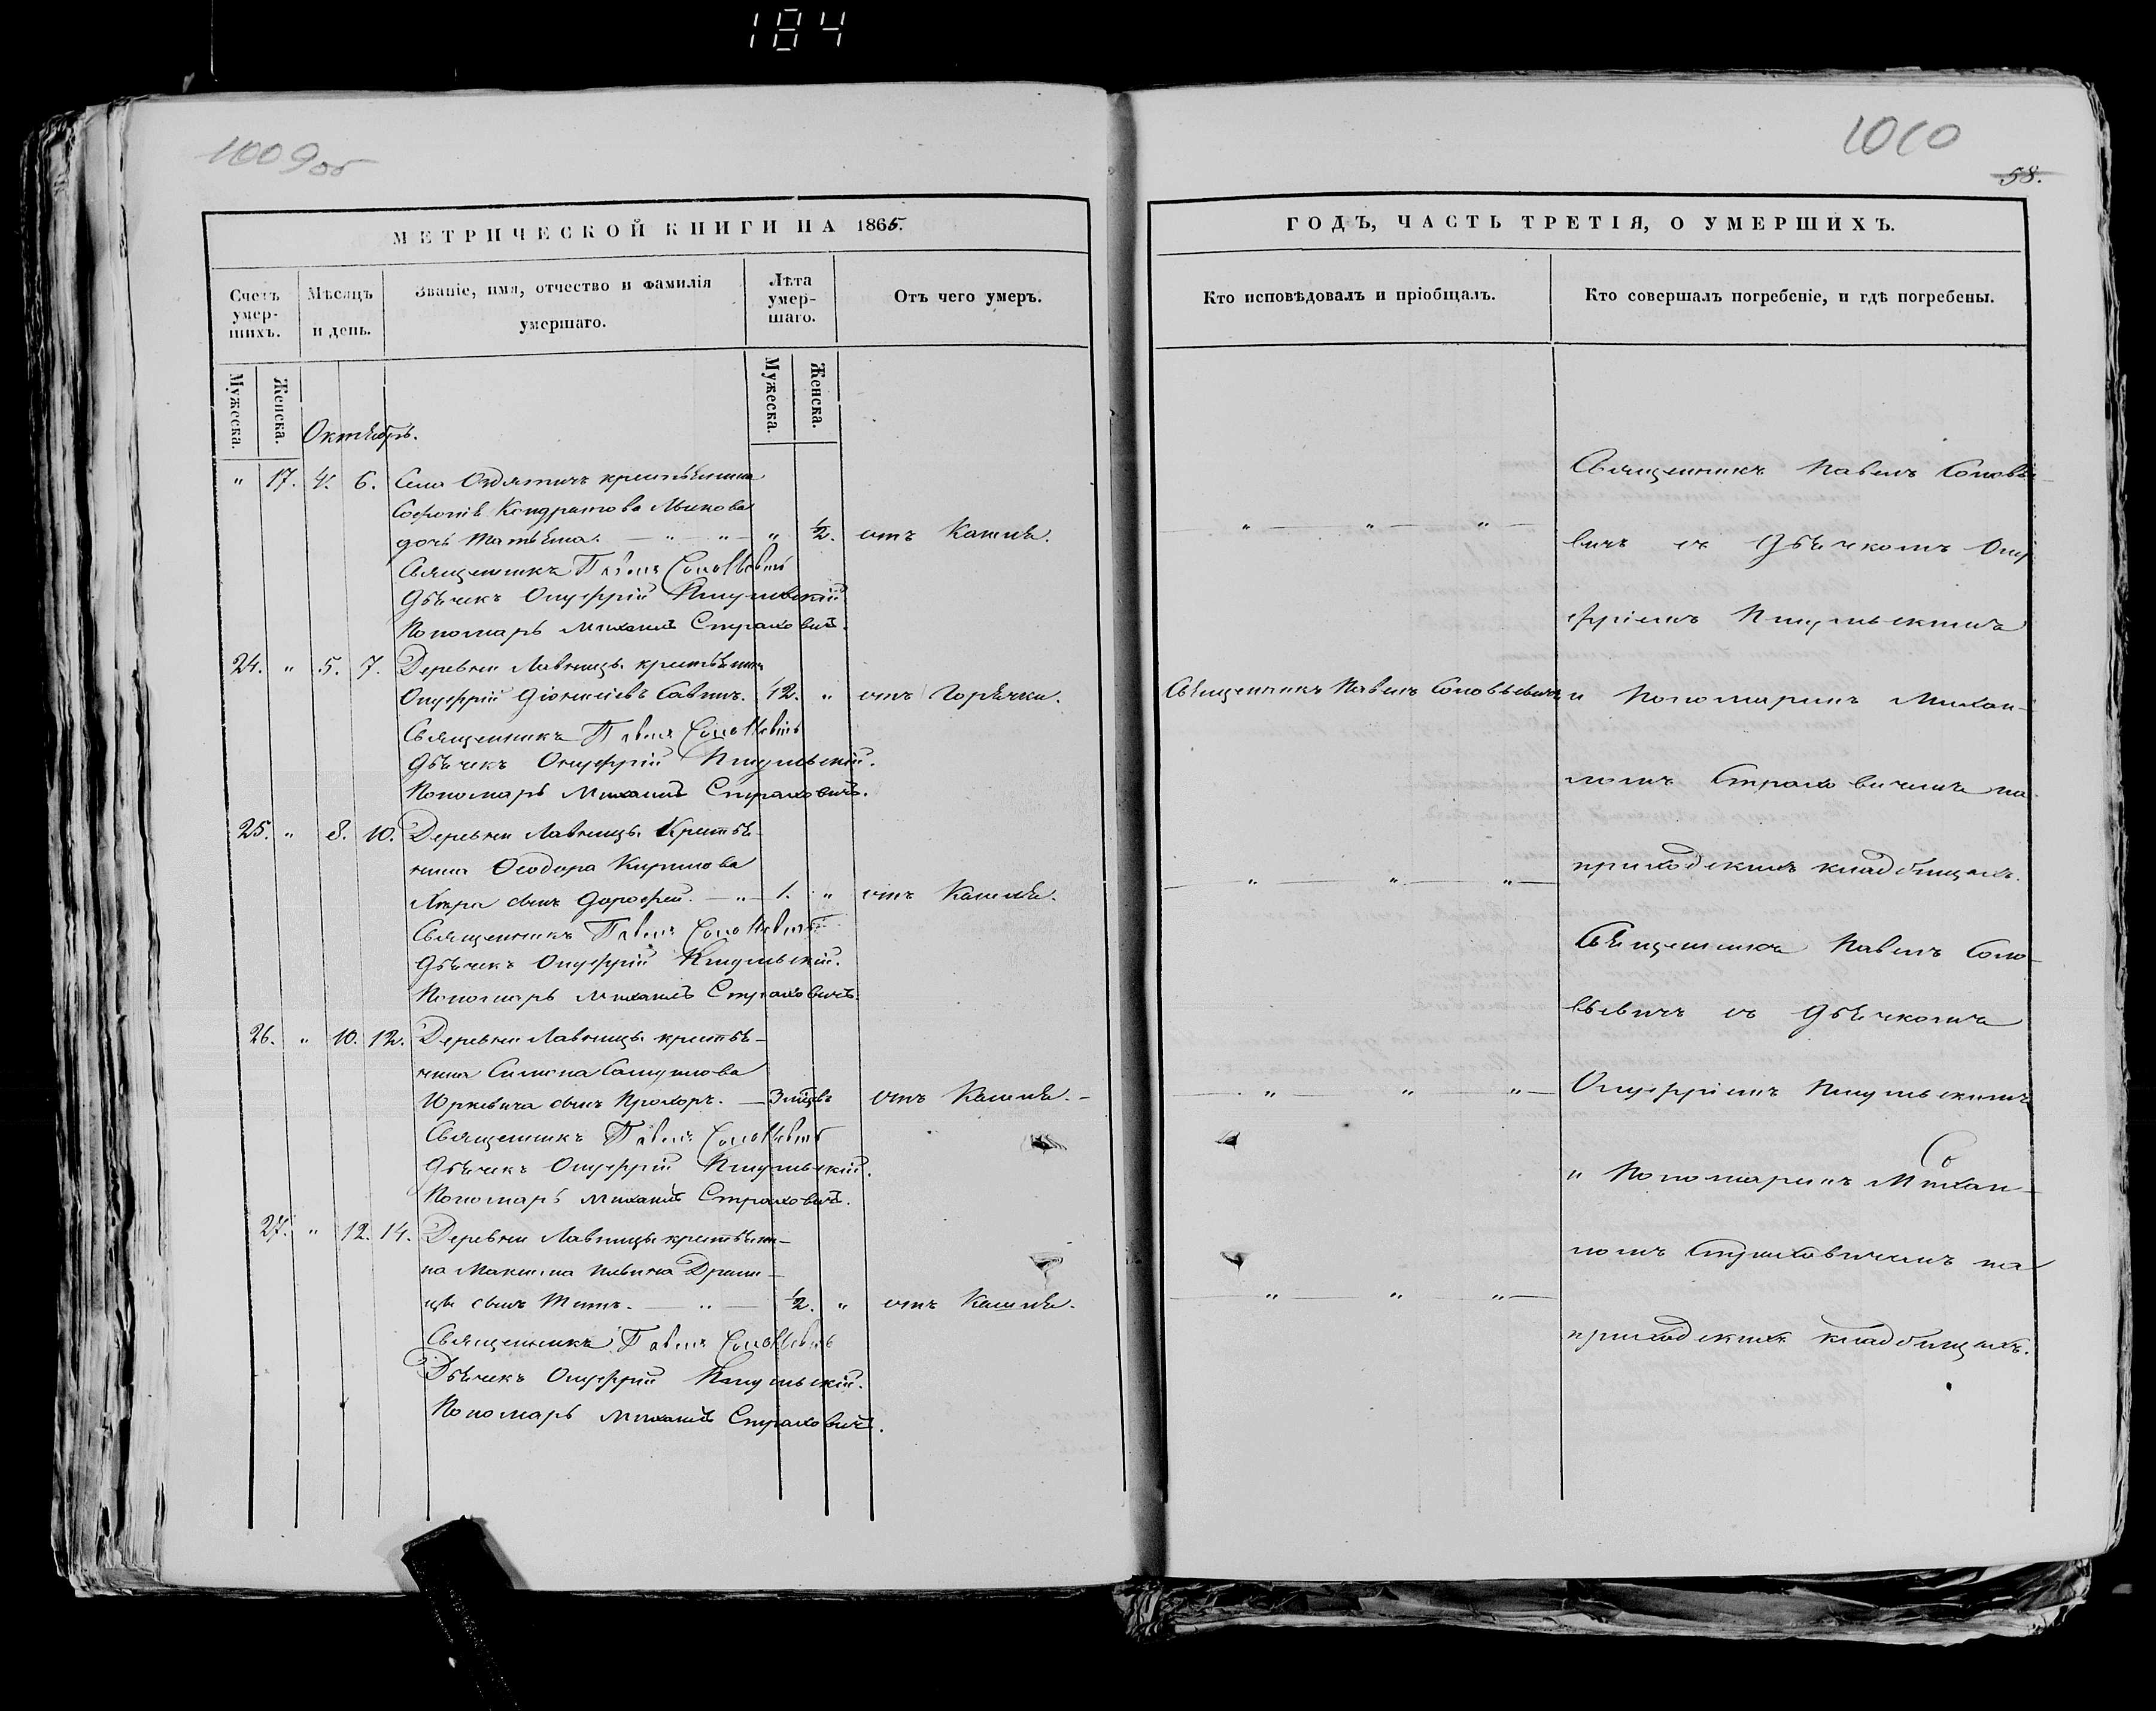 184
1009об
МЕТРИЧЕСКОЙ КНИГИ НА 1865.
Счетъ умер-шихъ.
Мѣсяцъ и день.
Званіе, имя, отчество и фамилія умершаго.
Лѣта умер-шаго.
Отъ чего умеръ.
Мужеска.
Женска.
Мужеска.
Женска.
Октябрь.
" 17. 4. 6. Села Оздятичъ крестьянина
Кондратова
дочь Татьяна. — " — " — " ½. отъ Кашля.
Священникъ Павелъ Соловьевичъ
Дьячекъ Онуфрій
Пономарь Михаилъ Страховичъ.
24. " 5. 7. Деревни Лавницъ крестьянинъ
Онуфрій Діонисіевъ Савичъ. 42. " отъ Горячки.
Священникъ Павелъ Соловьевичъ
Дьячекъ Онуфрій
Пономарь Михаилъ Страховичъ.
25. " 8. 10. Деревни Лавницъ Крестья-
нина Ѳеодора Кирилова
сынъ Дорофей. — " — 1. " отъ Кашля.
Священникъ Павелъ Соловьевичъ
Дьячекъ Онуфрій
Пономарь Михаилъ Страховичъ.
26. " 10. 12. Деревни Лавницъ крестья-
нина Симона Самуилова
Юркевича сынъ Прохоръ. — 3 мѣць отъ Кашля. -
Священникъ Павелъ Соловьевичъ
Дьячекъ Онуфрій
Пономарь Михаилъ Страховичъ.
27. " 12. 14. Деревни Лавницъ крестьяни-
на Максима
сынъ Титъ. — " — ½. " отъ Кашля.
Священникъ Павелъ Соловьевичъ
Дьячекъ Онуфрій
Пономарь Михаилъ Страховичъ.
1010
58.
ГОДЪ, ЧАСТЬ ТРЕТІЯ, О УМЕРШИХЪ.
Кто исповѣдовалъ и пріобщалъ.
Кто совершалъ погребеніе, и гдѣ погребены.
Священникъ Павелъ Соловье-
— " — " — " —
вичъ съ Дьячкомъ Ону-
фріемъ
Священникъ Павелъ Соловьевичъ
и Пономаремъ Михаи-
ломъ Страховичемъ на
приходскихъ кладбищахъ.
— " — " — " —
Священникъ Павелъ Соло-
вьевичъ съ Дьячкомъ
— " — " — " —
Онуфріемъ
и Пономаремъ Михаи-
ломъ Страховичемъ на
— " — " — " —
приходскихъ кладбищахъ.